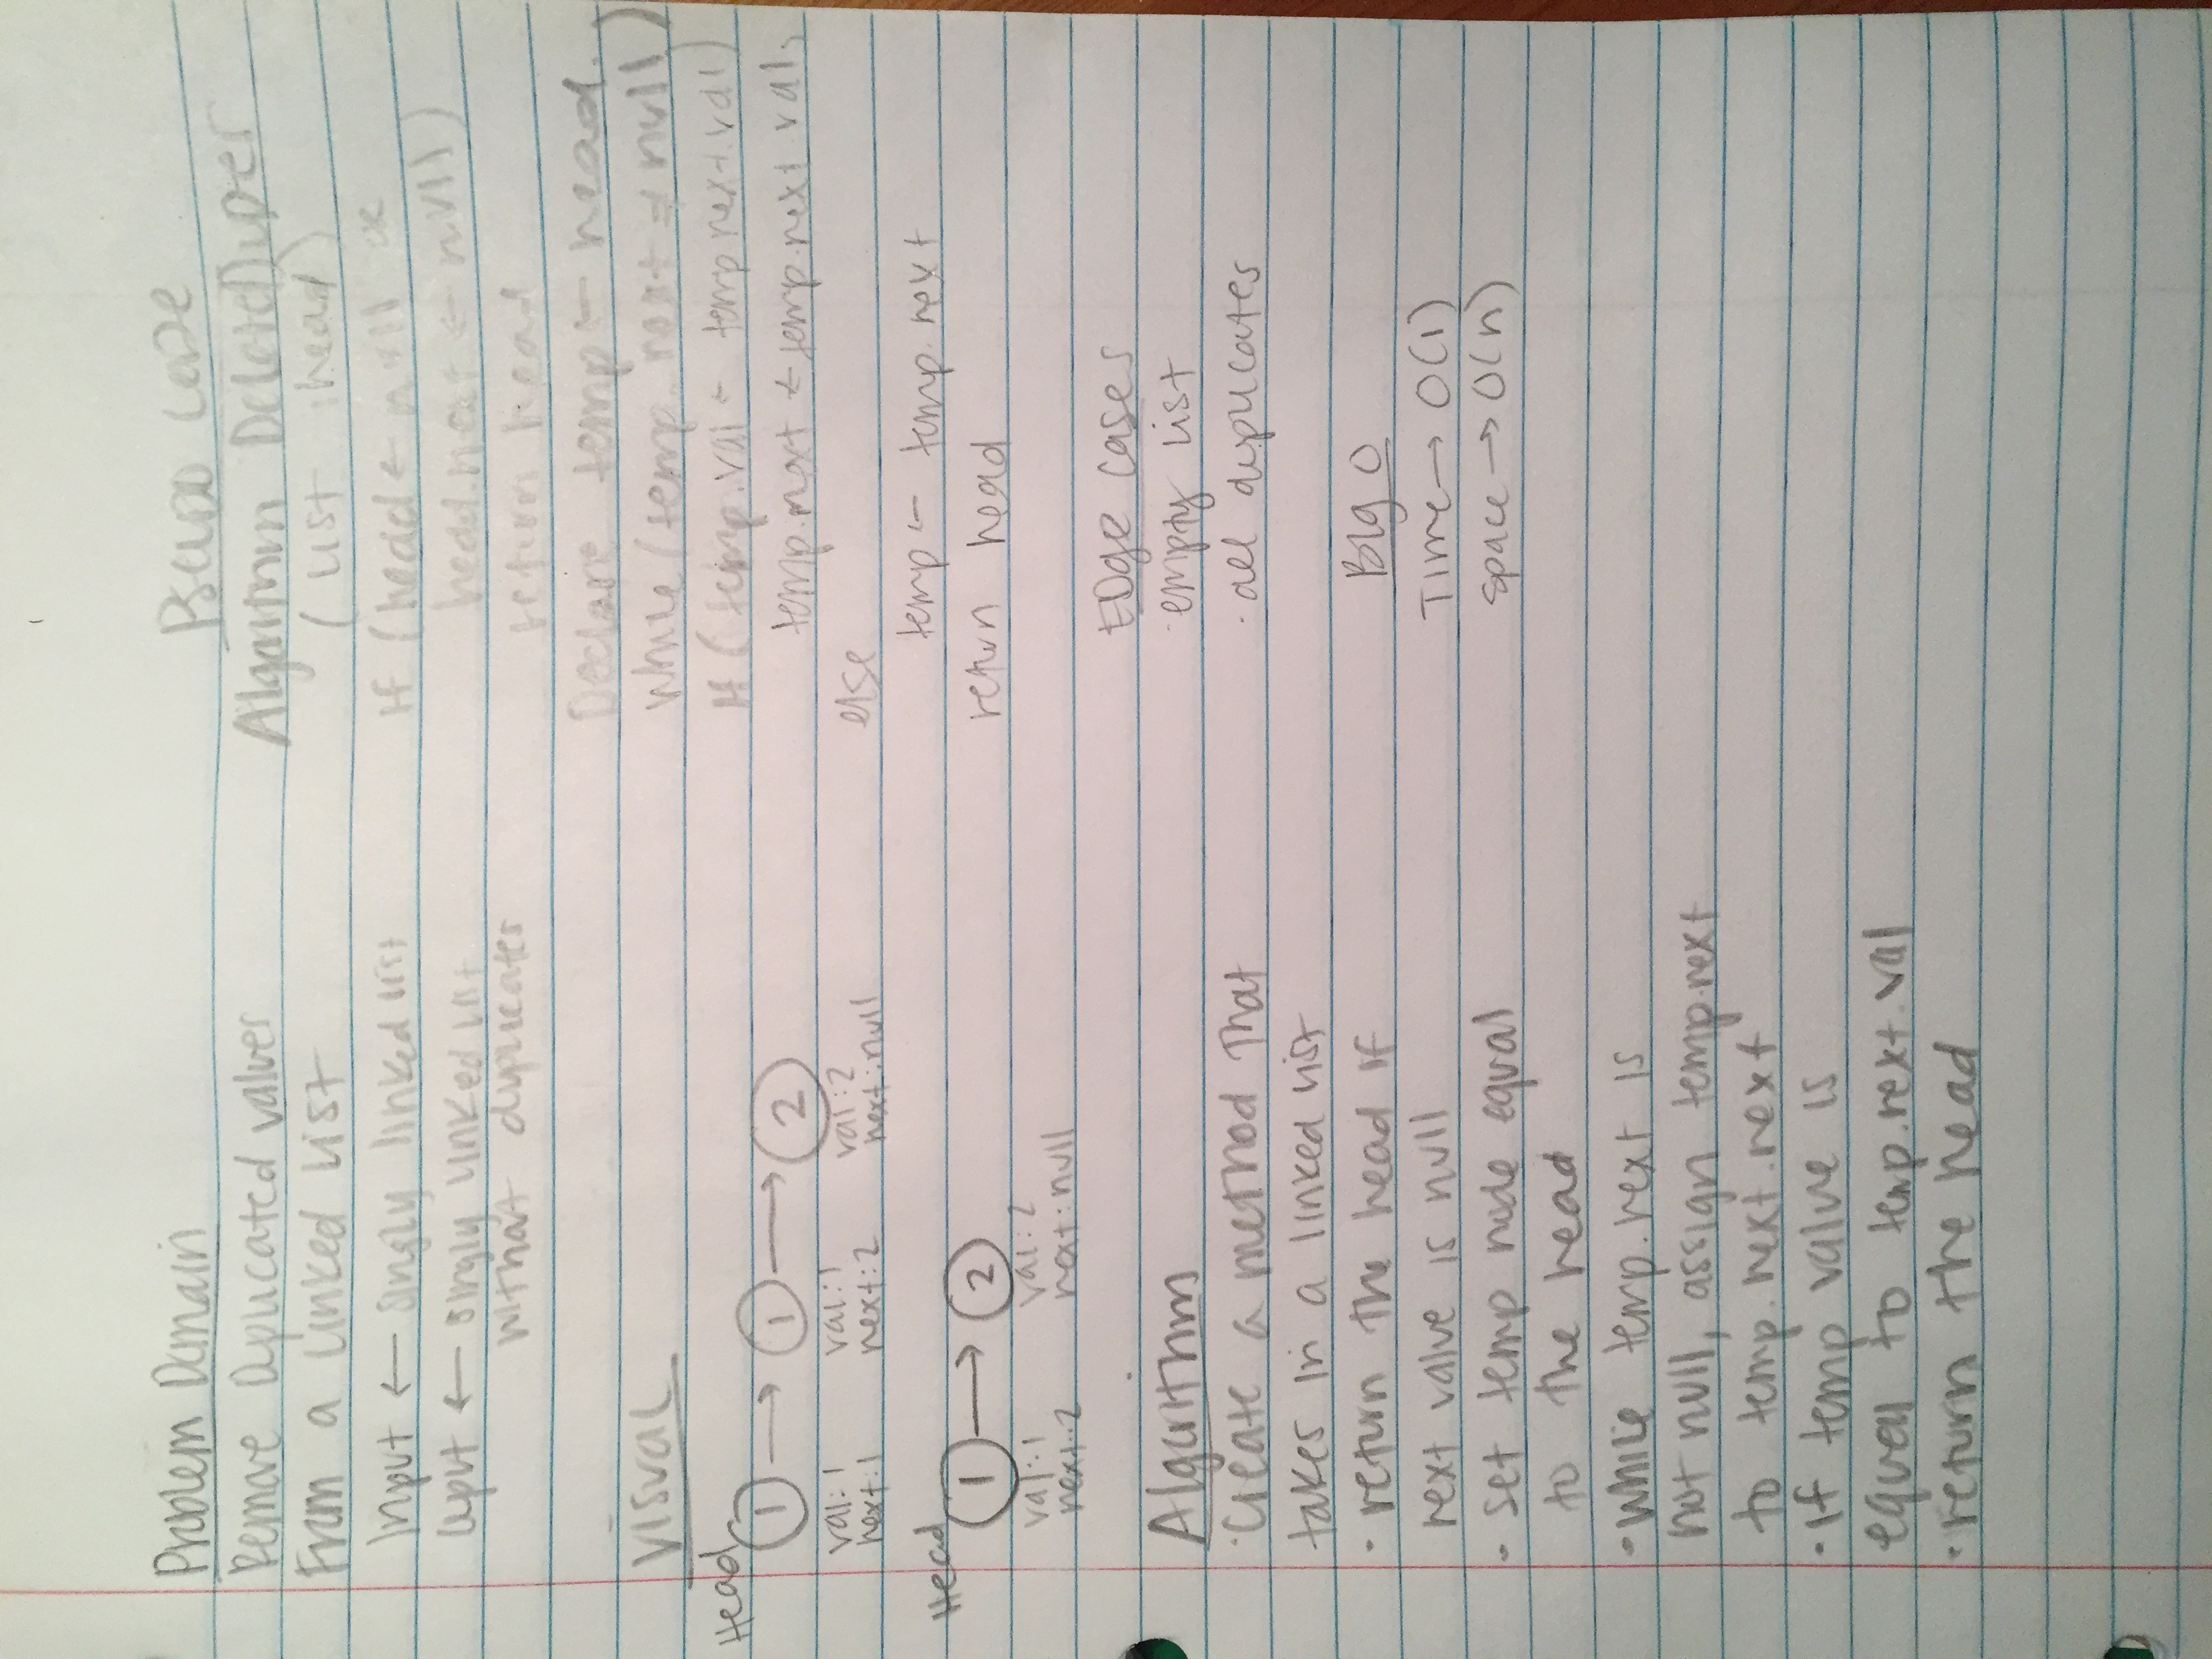 Problem Domain
Remove Duplicated values
From a linked list
Input ← singly linked list
Ouput ← singly linked list
without duplicates
Visual
Head
1 → 1 → 2
val: 1 val: 1 val: 2
next: 1 next: 2 next: null
Head
1 → 2
val: 1 val: 2
next: 2 next: null
Algorithm
· Create a method that
takes in a linked list
· return the head if
next value is null
- set temp node equal
to the head
- while temp.next is
not null, assign temp.next
to temp.next.next
· if temp value is
equal to temp.next.val
· return the head
Pseudo Code
Algorithm DeleteDupes
(List head)
If (head ← null or
head.next ← null)
return head
Declare temp ← head
while (temp.next ≠ null)
If (temp.val ← temp.next.val)
temp.next ← temp.next.val;
else
temp ← temp.next
return head
Edge cases
· empty list
· all duplicates
Big O
Time → O(1)
space → O(n)